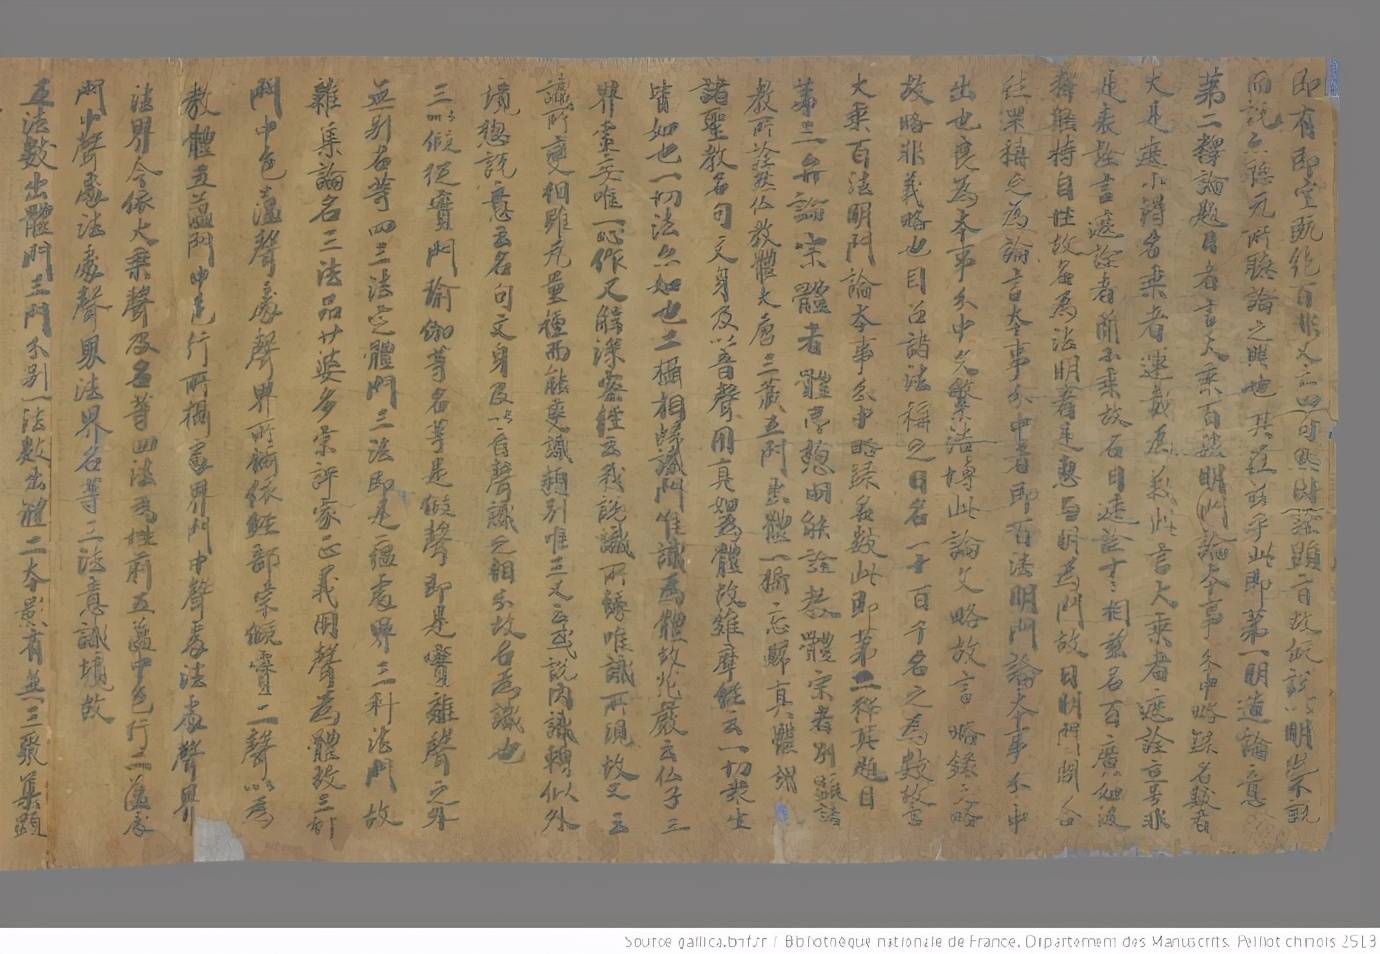 即有即空既絕百非又亡四句照時證顯言故假說以明常不說
而說亦聽无所聽論之興也其在茲乎此即第一明造論意
第二釋論題目者言大乘百法明門論本事分中略錄名數者
大是廣小得名乘者運載為義此言大乘者遮詮立号非
是表詮言遮詮者簡小乘故名曰遮詮十三相並名百廣勉濟
釋能持自性故每為法明者是惠与明為門故曰明門問答
往罣稱之為論言本事分中者即百法明門論本事分中
出也良為本事分中文繁浩博此論文略故言略錄文略
故略非義略也目召諸法稱之曰名一十百千名之為數故言
大乘百法明門論本事分中略錄名數此即第二釋其題目
第三弁論宗體者體即惣明能詮教體宗者別顯諸
教所詮然仏教體大唐三藏立門出體一攝忘歸真體謂
諸聖教名句文身及以音聲用真如為體故維摩經云一切眾生
皆如也一切法亦如也二攝相歸識門唯識為體故花嚴云仏子三
界虛妄唯一心作又解深密經云我說識所緣唯識所現故又云
識所變相雖无量種而能變識類別唯三又云或說內識轉似外
境惣說意云名句文身及以言聲識之相分故名為識也
三以假從實門瑜伽等名等是假聲即是實離聲之外
無別名等四三法定體門三法即是蘊處界三科法門故
雜集論名三法品廿婆多宗評家正義用聲為體教三部
門中色蘊聲處聲界所攝依經部宗假實二聲以為
教體五蘊門中色行所攝處界門中聲處法處聲界
法界今依大乘聲及名等四法為性前五蘊中色行二蘊處
門中聲處法處聲界法界名等三法意識境故
五法數出體門三門不別一法數出體二本影有無一三聚集顯
Source gallica.bnf.fr / Bibliothèque nationale de France. Département des Manuscrits. Pelliot chinois 2513